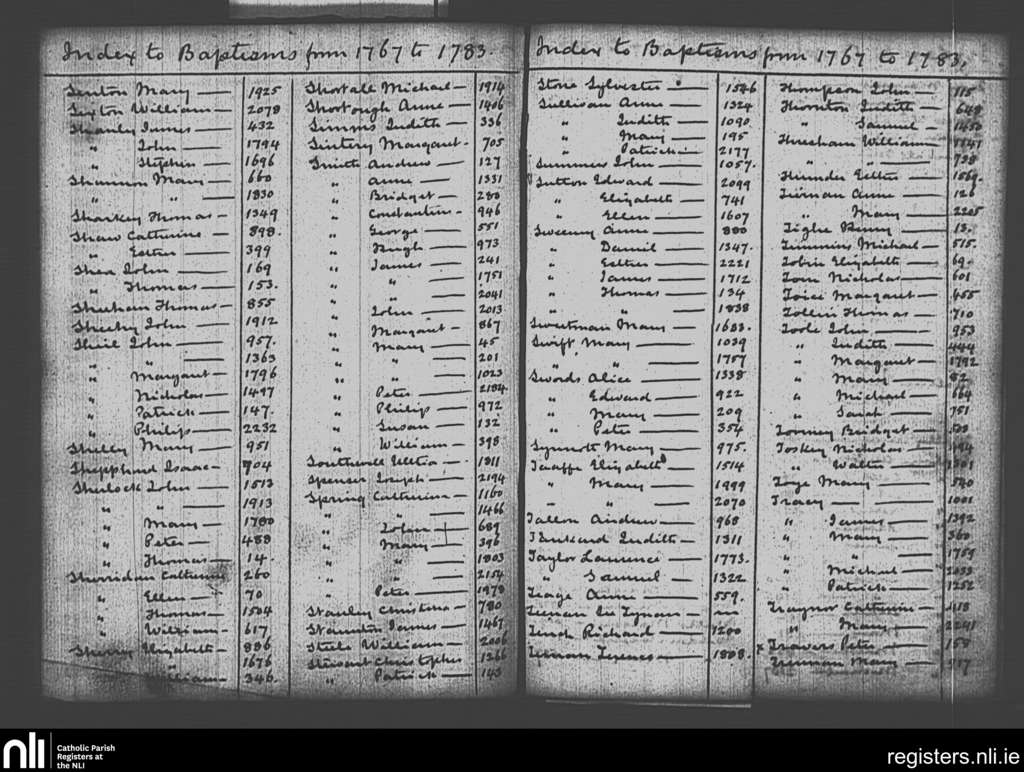 Index to Baptisms from 1767 to 1783.
Sexton Mary — 1925
Sexton William — 2078
Shanley James — 432
" John — 1794
" Stephen — 1696
Shannon Mary — 660
" " — 1830
Sharkey Thomas — 1349
Shaw Catherine — 898.
" Esther — 399
Shea John — 169
" Thomas — 153.
Sheehan Thomas — 855
Sheehy John — 1912
Sheil John — 957.
" " — 1363
" Margaret — 1796
" Nicholas — 1497
" Patrick — 147.
" Philip — 2232
Shelley Mary — 951
Shepphard Isaac — 704
Sherlock John — 1513
" " — 1913
" Mary — 1780
" Peter — 488
" Thomas — 14.
Sherridan Catherine 260
" Ellen — 70
" Thomas — 1504
" William — 617
Sherry Elizabeth — 886
" 1676
William — 346.
Shortall Michael — 1914
Shortough Anne — 1406
Simms Judith — 336
Margaret — 705
Smith Andrew — 127
" Anne — 1331
" Bridget — 280
" Constantine — 946
" George — 551
" Hugh — 973
" James — 241
" " — 1751
" " — 2041
" John — 2013
" Margaret — 867
" Mary — 45
" " — 201
" " — 1023
" Peter — 2184
" Philip — 972
" Susan — 132
" William — 398
Southwell — 1811
Spenser Joseph — 2194
Spring Catherine — 1160
" " — 1466
" John — 689
" Mary — 396
" " — 1803
" " — 2154
" Peter — 1978
Stanley Christina — 780
Staunton James — 1467
Steele William — 2006
Stewart Christopher 1266
" Patrick — 143
Index to Baptisms from 1767 to 1783.
Stone Sylvester — 1546
Sullivan Anne — 1324
" Judith — 1090.
" Mary — 195
" Patrick — 2177
Summers John — 1057.
Sutton Edward — 2099
" Elizabeth — 741
" Ellen — 1607
Sweeny Anne — 880
" Daniel — 1347.
" Esther — 2221
" James — 1712
" Thomas — 134
" " — 1838
Sweetman Mary — 1683.
Swift Mary — 1039
" " — 1757
Swords Alice — 1338
" Edward — 922
" Mary — 209
" Peter — 354
Synnott Mary — 975.
Taaffe Elizabeth — 1514
" Mary — 1999
" " — 2070
Tallon Andrew — 968
Judith — 1311
Taylor Laurence — 1773.
" Samuel — 1322
Teage Anne — 559.
Teenan See Tynan —
Tench Richard — 1200
Ternan Terence — 1808.
Thompson John — 115
Thornton Judith — 648
" Samuel — 1450
William — 1141
" — 738
Esther — 1869.
Tiernan Anne — 126
" Mary — 2205
Tighe — 13.
Timmins Michael — 515.
Tobin Elizabeth — 69.
Nicholas — 601
Margaret — 455
Thomas — 710
Toole John — 953
" Judith — 444
" Margaret — 1792
" Mary — 82
" Michael — 664
" Sarah — 751
Toomey Bridget —
Toskey Nicholas —
" Walter —
Toye Mary — 540
Tracey — 1001
" James — 1392
" Mary — 360
" " — 1759
" Michael — 2033
" Patrick — 1252
Traynor Catherine — 418
" Mary — 2241
x Travers Peter — 158
Mary — 917
nli
Catholic Parish
Registers at
the NLI
registers.nli.ie